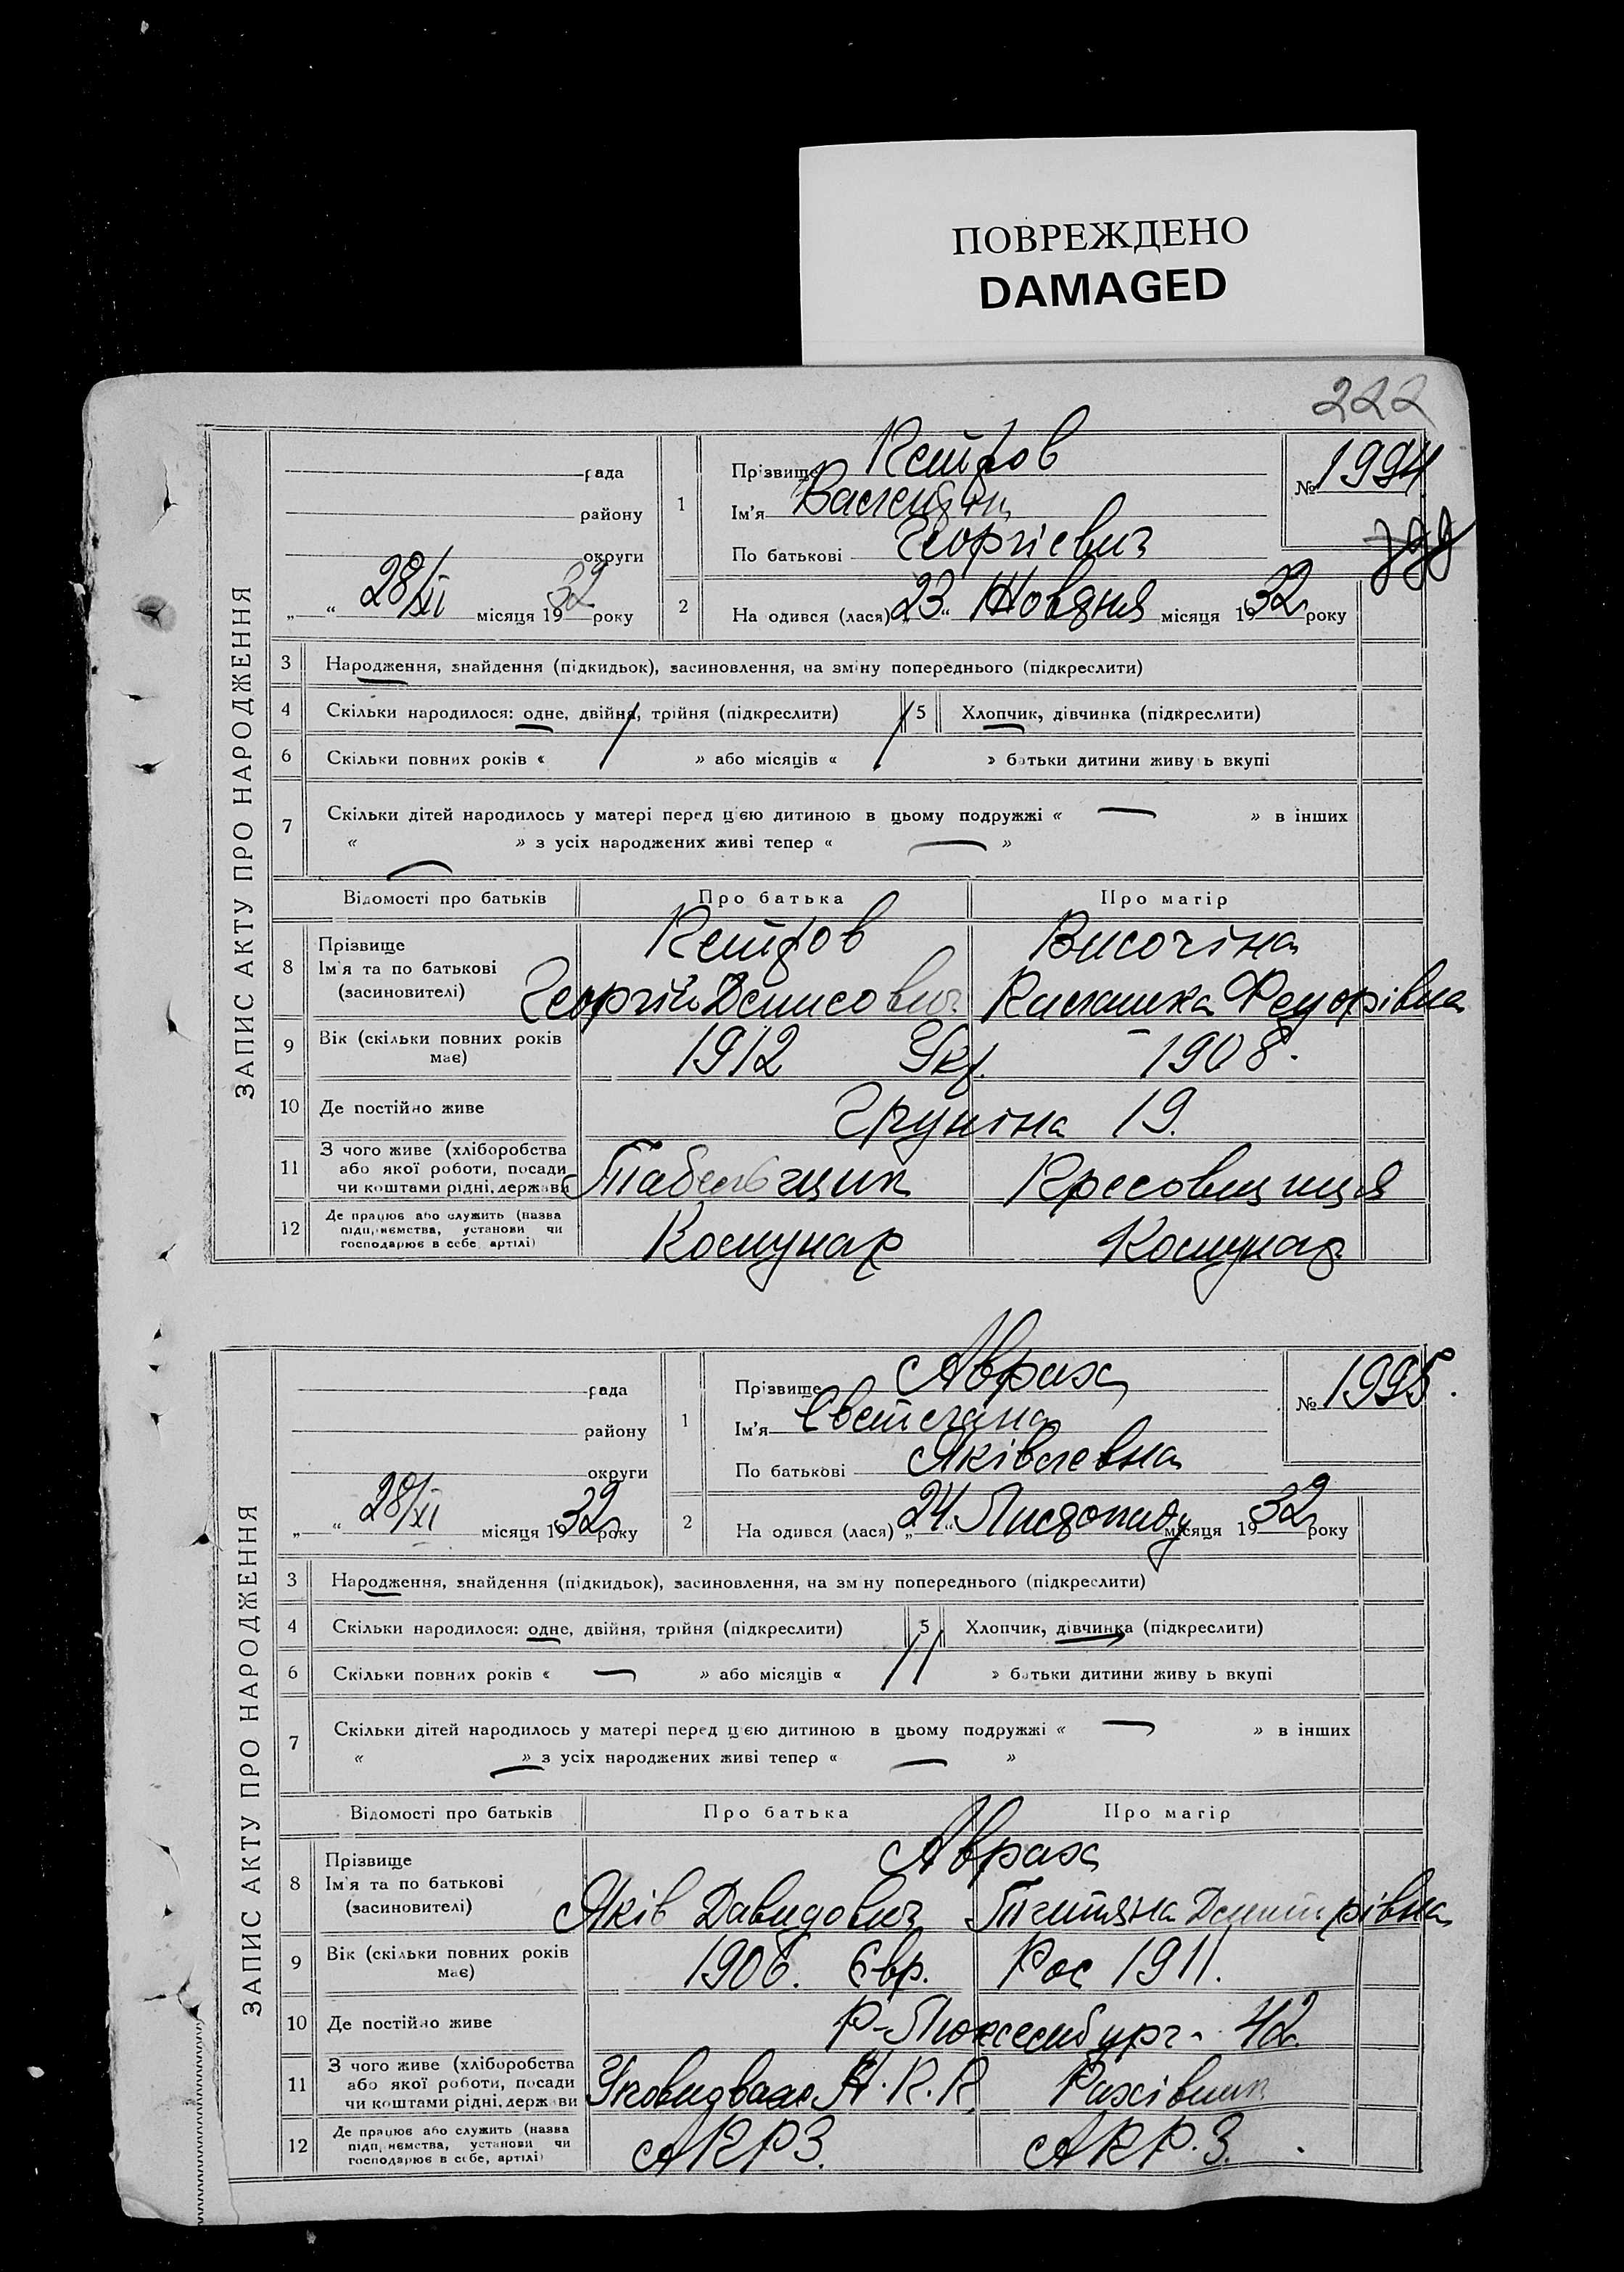 ПОВРЕЖДЕНО
DAMAGED
222
ЗАПИС АКТУ ПРО НАРОДЖЕННЯ
рада
району
округи
„ “ 28/XI місяця 1932 року
1 Прізвище
Ім'я
По батькові Георгієвич
№ 1994
2 На одився (лася) „23“ Жовтня місяця 1932 року
3 Народження, знайдення (підкидьок), засиновлення, на зміну попереднього (підкреслити)
4 Скільки народилося: одне, двійня, трійня (підкреслити) 5 Хлопчик, дівчинка (підкреслити)
6 Скільки повних років « » або місяців « » батьки дитини живу ь вкупі
7 Скільки дітей народилось у матері перед цією дитиною в цьому подружжі « — » в інших
« — » з усіх народжених живі тепер « — »
Відомості про батьків Про батька Про матір
8 Прізвище Височіна
Ім'я та по батькові
(засиновителі) Георгій Денисович Федорівна
9 Вік (скільки повних років має) 1912 Укр. 1908.
10 Де постійно живе Груніна 19.
11 З чого живе (хліборобства або якої роботи, посади чи коштами рідні, держави Табельщик
12 Де працює або служить (назва підприємства, установи чи господарює в себе, артілі) Комунар Комунар
ЗАПИС АКТУ ПРО НАРОДЖЕННЯ
рада
району
округи
„ “ 28/XI місяця 1932 року
1 Прізвище Аврах
Ім'я Светлана
По батькові Яківлевна
№ 1995.
2 На одився (лася) „24“ Листопаду місяця 1932 року
3 Народження, знайдення (підкидьок), засиновлення, на зм ну попереднього (підкреслити)
4 Скільки народилося: одне, двійня, трійня (підкреслити) 5 Хлопчик, дівчинка (підкреслити)
6 Скільки повних років « — » або місяців « » батьки дитини живу ь вкупі
7 Скільки дітей народилось у матері перед цією дитиною в цьому подружжі « — » в інших
« — » з усіх народжених живі тепер « — »
Відомості про батьків Про батька Про матір
8 Прізвище Аврах
Ім'я та по батькові
(засиновителі) Яків Давидович Титяна Дмитрівна
9 Вік (скільки повних років має) 1906. Євр. Рос 1911.
10 Де постійно живе Р-Люксембург- 42.
11 З чого живе (хліборобства або якої роботи, посади чи коштами рідні, держ ви Р.К.К. Рахівник
12 Де працює або служить (назва підприємства, установи чи господарює в себе, артілі) АКРЗ. АКР.З.